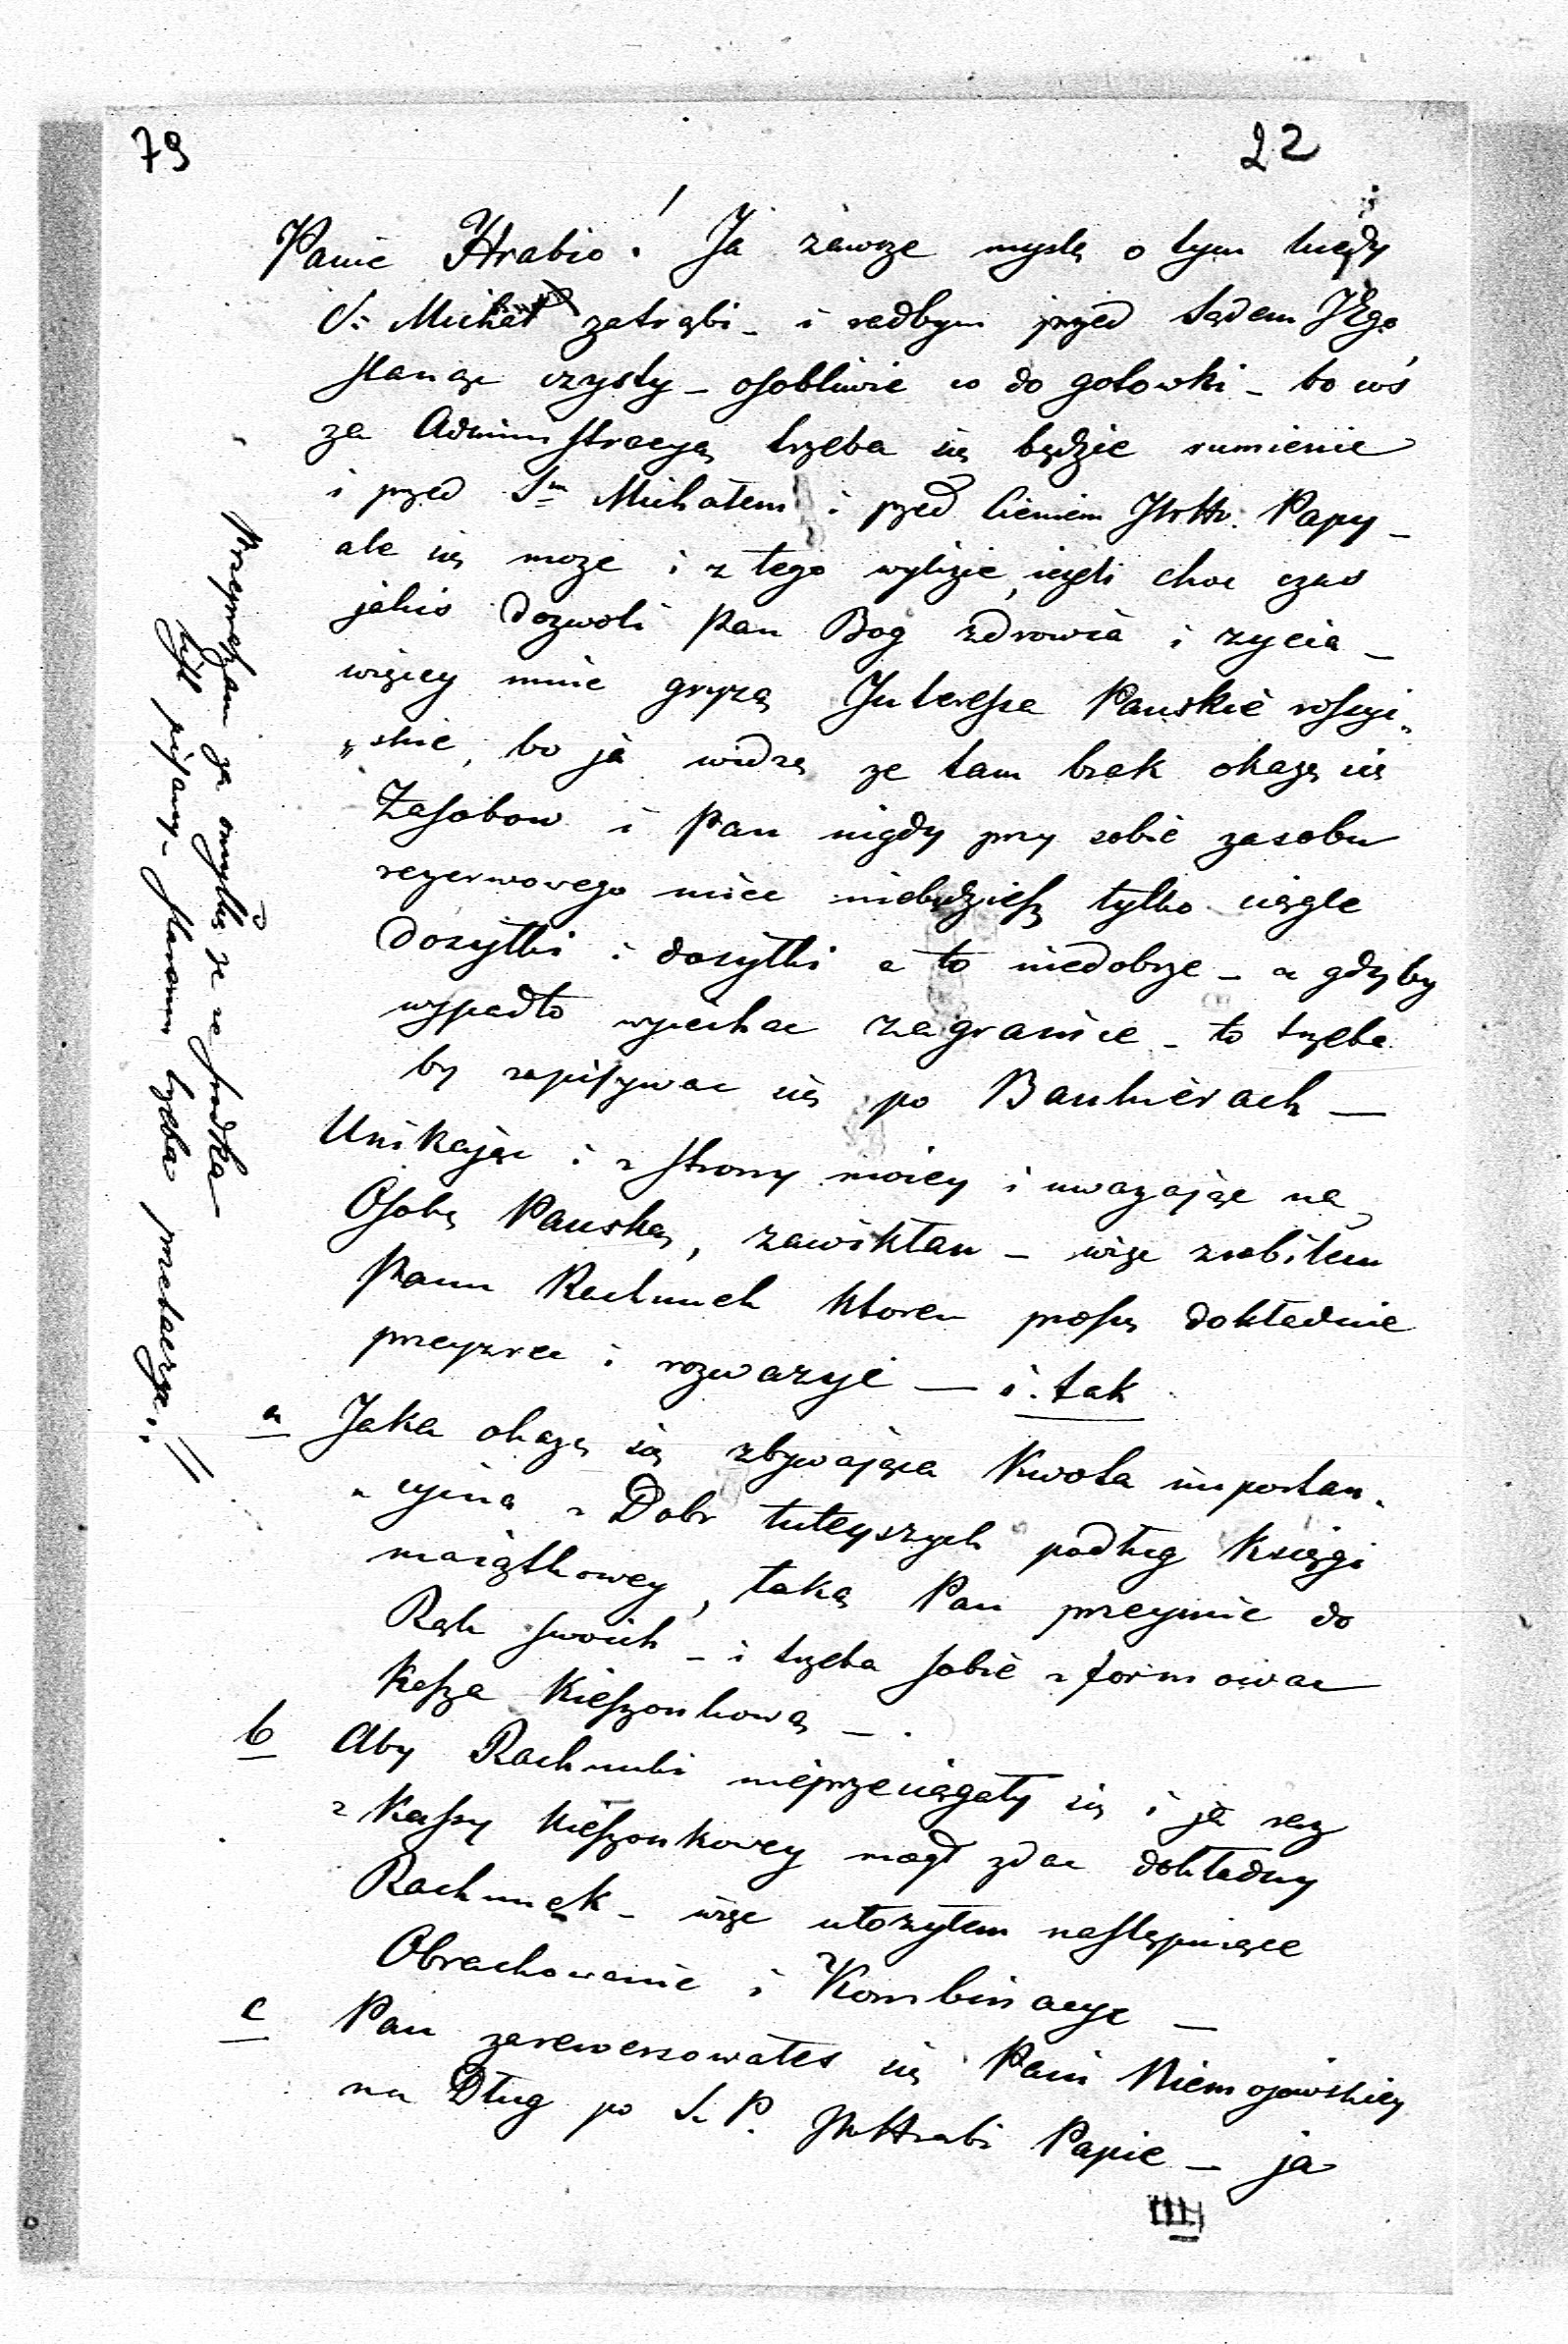 79
22
Panie Hrabio! Ja zawsze myslę o tym kiedy
S: Michał zatrąbi – i radbym przed Sądem JEgo
stanąc czysty – osobliwie co do gotowki – bo coś
za Administracyą trzeba się będzie rumienic
i przed Sm Michałem i przed Cieniem JWHr. Papy –
ale się moze i z tego wylizie, iezeli choc czas
jakis dozwoli Pan Bog zdrowia i zycia –
więcey mnie gryzą Interessa Pańskie rossyi„
„skie, bo ja widzę ze tam brak okazę się
Zasobow i Pan nigdy przy sobie zasobu
rezerwowego miec niebędziesz tylko ciągle
dosyłki i dosyłki a to niedobrze – a gdyby
wypadło wyiechac zagranice – to trzeba
by zapisywac się po Bankierach –
Unikając i z strony moiey i uwazając na
Osobę Panską, zawikłan – więc zrobiłem
Panu Rachunek ktoren proszę dokładnie
przeyzrec i rozwazyć – i tak
a Jaka okazę się zbywająca Kwota importan„
„cyina z Dobr tuteyszych podług Księgi
maiątkowey, taką Pan przeymie do
Rąk swoich – i trzeba sobie zformowac
Kassę Kieszonkową –.
b Aby Rachunki nieprzeciągały się i ja raz
z Kassy Kieszonkowey mogł zdac dokładny
Rachunek – więc ułozyłem następuiące
Obrachowanie i Kombinacye –
c Pan zarewersowałes się Pani Niemojowskiey
na Dług po S. P. JWHrabi Papie – ja
Przepraszam za omyłkę ze ze srodka
list pisany – staremu trzeba przebaczyc. //